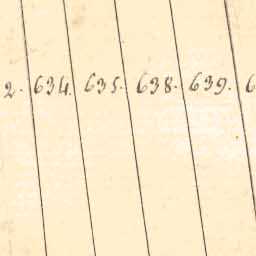 2. 634. 635. 638. 639. 6